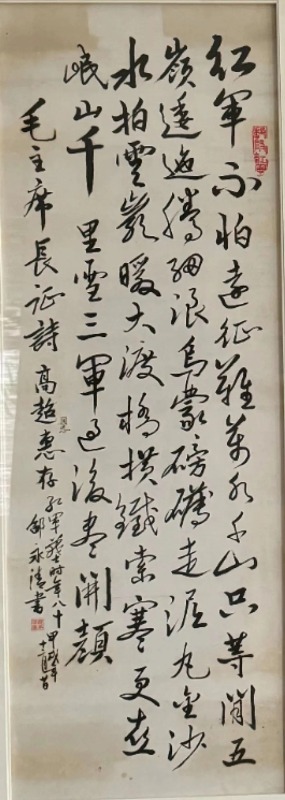 红軍不怕遠征難萬水千山只等閒五
嶺逶迤騰細浪烏蒙磅礴走泥丸金沙
水拍雲巖暖大渡橋横鐵索寒更喜
岷山千里雪三軍过後盡開顔
毛主席長征詩 高超惠存
同志
时年八十 甲戌年
永清書